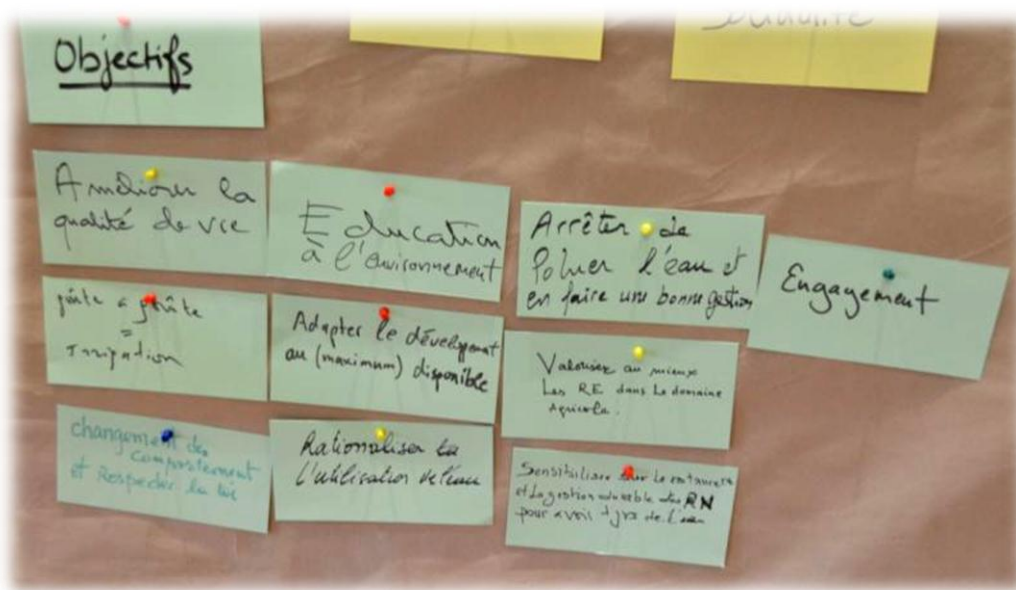 Objectifs
Améliorer la
qualité de vie
Education
à l'environnement
Arrêter de
Poluer l'eau et
en faire une bonne gestion
Engagement
=
irrigation
Adapter le développement
au (maximum) disponible
Valoriser au mieux
Les RE dans le domaine
Agricole.
changement de
comportement
et Respecter la loi
Rationaliser
l'utilisation de l'eau
Sensibiliser sur
et la gestion durable des RN
pour avoir tjrs de l'eau